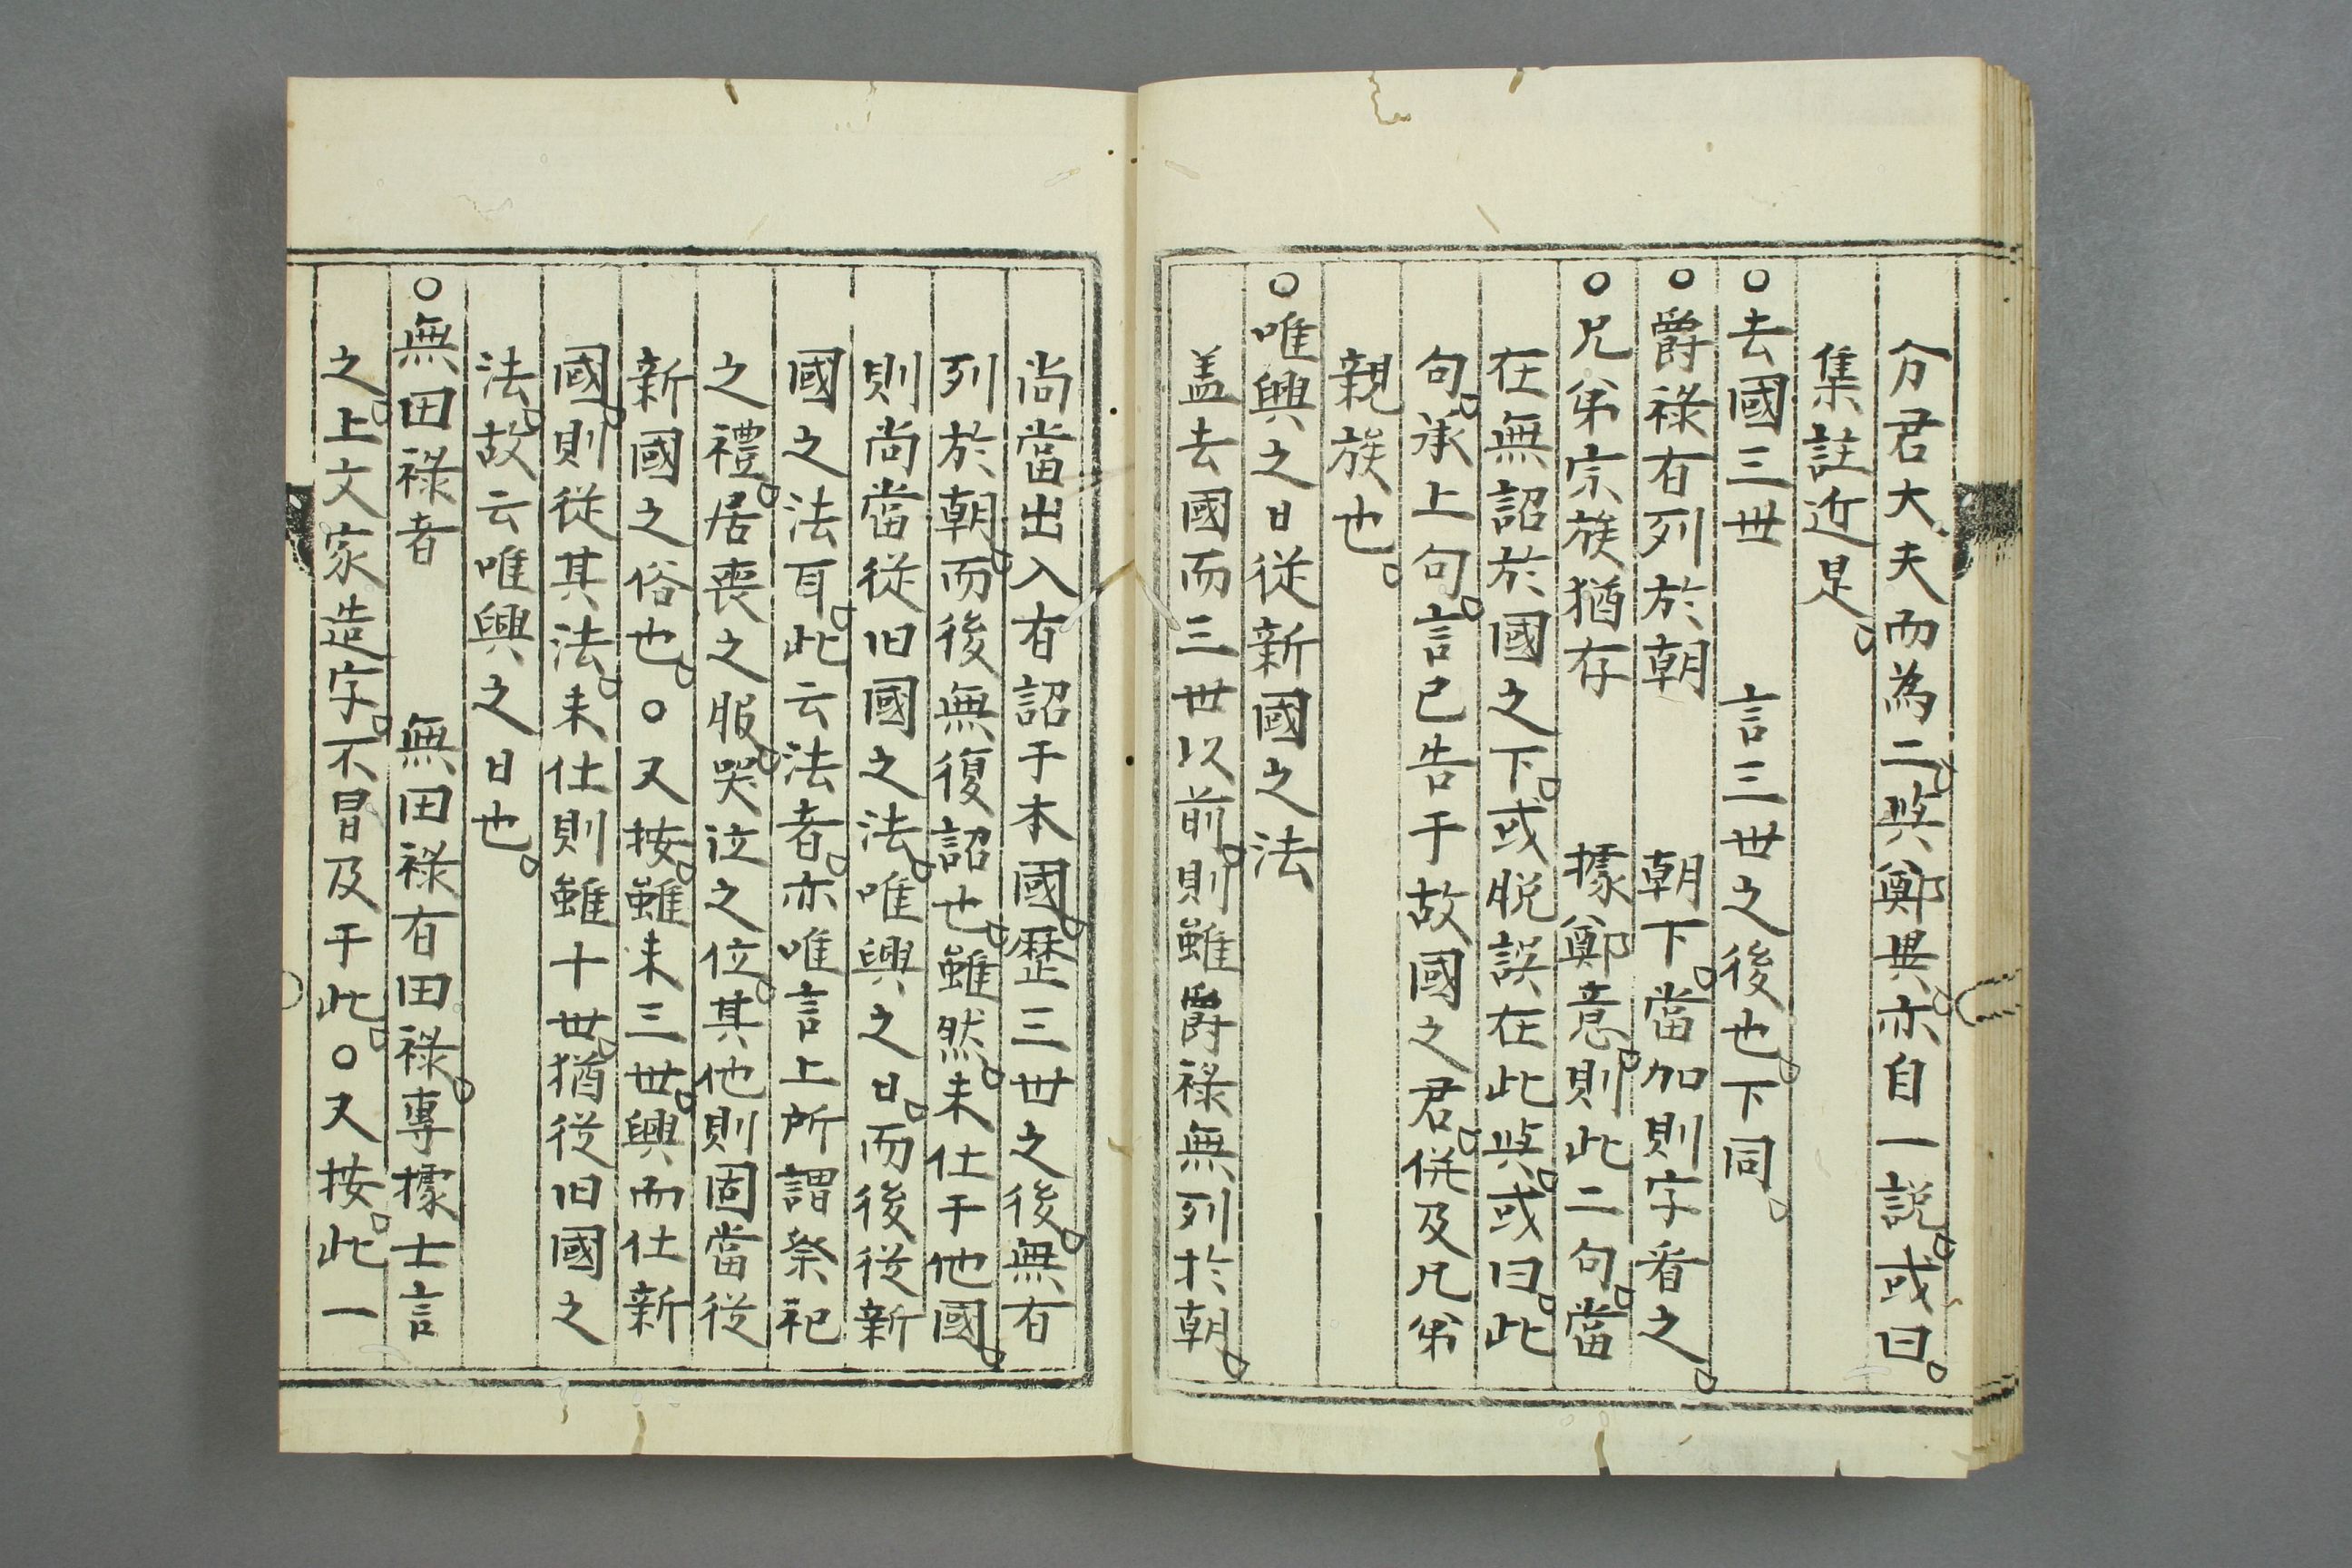 分君大夫而為二。與鄭異。亦自一説。或曰。
集註近是。
○去國三世　言三世之後也。下同。
○爵禄有列於朝　朝下。當加則字看之。
○兄弟宗族猶存　據鄭意。則此二句。當
在無詔於國之下。或脱誤在此與。或曰。此
句。承上句。言已告于故國之君。併及兄弟
親族也。
○唯興之日従新國之法
盖去國而三世以前。則雖爵禄無列於朝。
尚當出入有詔于本國。歴三世之後。無有
列於朝。而後無復詔也。雖然。未仕于他國。
則尚當従旧國之法。唯興之日。而後従新
國之法耳。此云法者。亦唯言上所謂祭祀
之禮。居喪之服。哭泣之位。其他則固當従
新國之俗也。○又按。雖未三世。興而仕新
國。則従其法。未仕則雖十世。猶従旧國之
法。故云唯興之日也。
○無田禄者　無田禄有田禄。專據士言
之。上文家造字。不冒及于此。○又按。此一